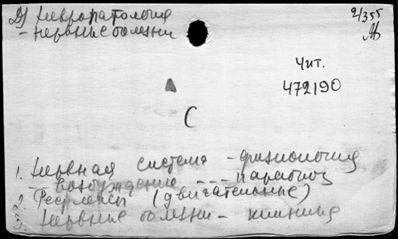 2) Невропатология
2/355
- нервные болезни
Чит.
472190
С
1. Нервная система - физиология
- возбуждение --- парабиоз
2. Рефлексы (двигательные)
3. Нервные болезни - клиника